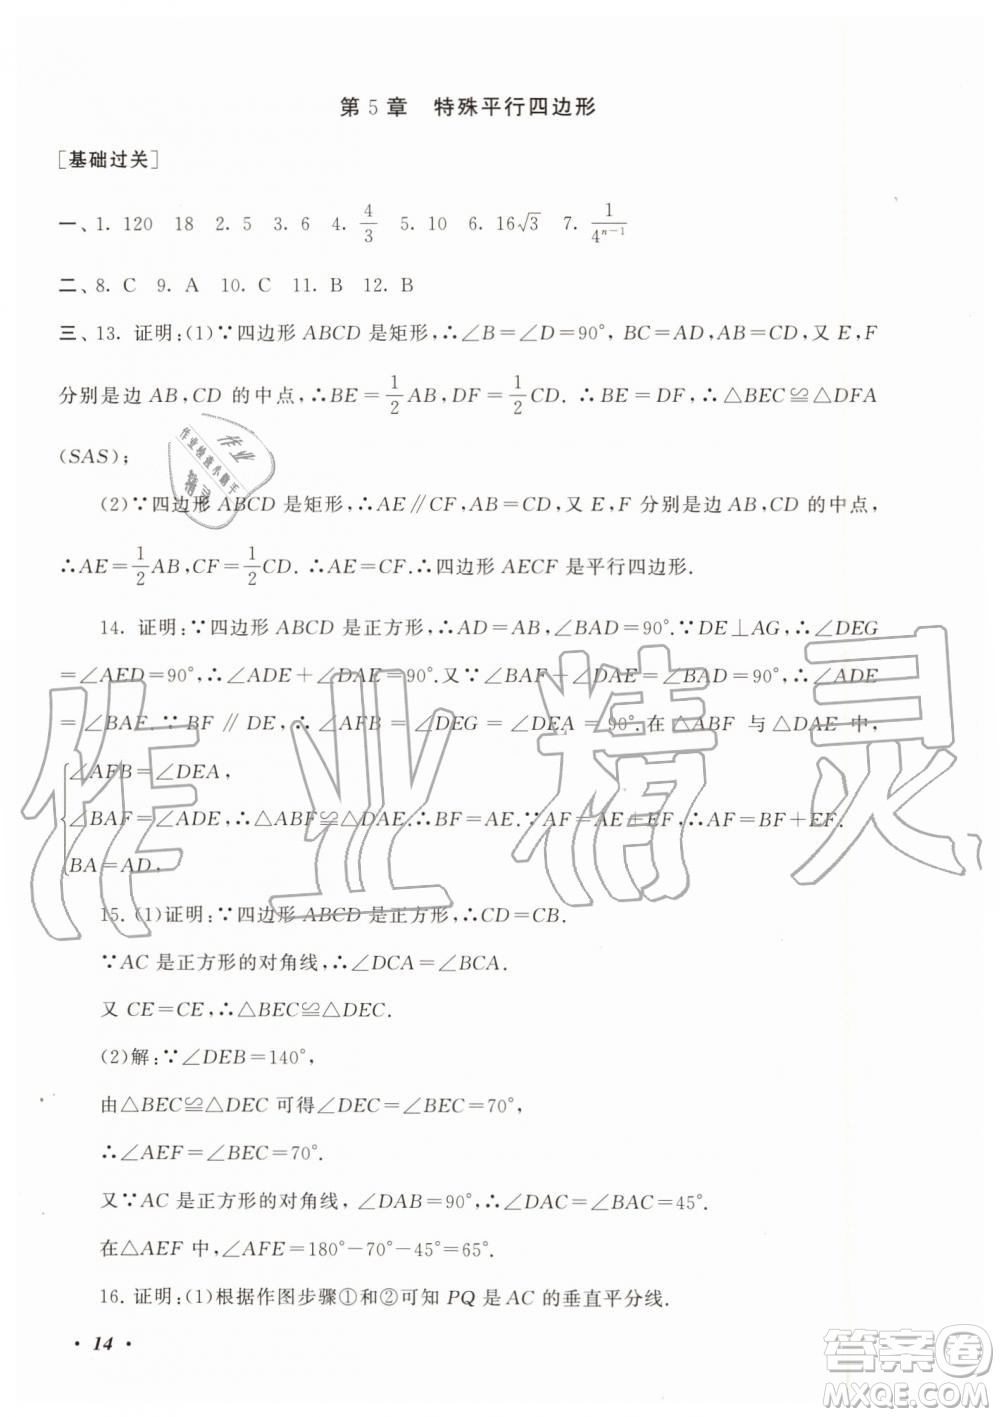 第 5 章　特殊平行四边形
[基础过关]
一、1. 120　18　2. 5　3. 6　4. 4/3　5. 10　6. 16√3　7. 1/4ⁿ⁻¹
二、8. C　9. A　10. C　11. B　12. B
三、13. 证明:(1)∵四边形 ABCD 是矩形,∴∠B=∠D=90°,BC=AD,AB=CD,又 E,F
分别是边 AB,CD 的中点,∴BE=1/2AB,DF=1/2CD. ∴BE=DF,∴△BEC≌△DFA
(SAS);
(2)∵四边形 ABCD 是矩形,∴AE∥CF,AB=CD,又 E,F 分别是边 AB,CD 的中点,
∴AE=1/2AB,CF=1/2CD. ∴AE=CF.∴四边形 AECF 是平行四边形.
14. 证明:∵四边形 ABCD 是正方形,∴AD=AB,∠BAD=90°.∵DE⊥AG,∴∠DEG
=∠AED=90°.∴∠ADE+∠DAE=90°.又∵∠BAF+∠DAE=∠BAD=90°,∴∠ADE
=∠BAF.∵BF∥DE,∴∠AFB=∠DEG=∠DEA=90°.在△ABF 与△DAE 中,
∠AFB=∠DEA,
∠BAF=∠ADE,∴△ABF≌△DAE.∴BF=AE.∵AF=AE+EF,AF=BF+EF.
BA=AD,
15. (1)证明:∵四边形 ABCD 是正方形,∴CD=CB.
∵AC 是正方形的对角线,∴∠DCA=∠BCA.
又 CE=CE,∴△BEC≌△DEC.
(2)解:∵∠DEB=140°,
由△BEC≌△DEC 可得∠DEC=∠BEC=70°,
∴∠AEF=∠BEC=70°.
又∵AC 是正方形的对角线,∠DAB=90°,∴∠DAC=∠BAC=45°.
在△AEF 中,∠AFE=180°-70°-45°=65°.
16. 证明:(1)根据作图步骤①和②可知 PQ 是 AC 的垂直平分线.
· 14 ·
作业
作业检查小助手
精灵
作业精灵
答案卷
MXQE.COM